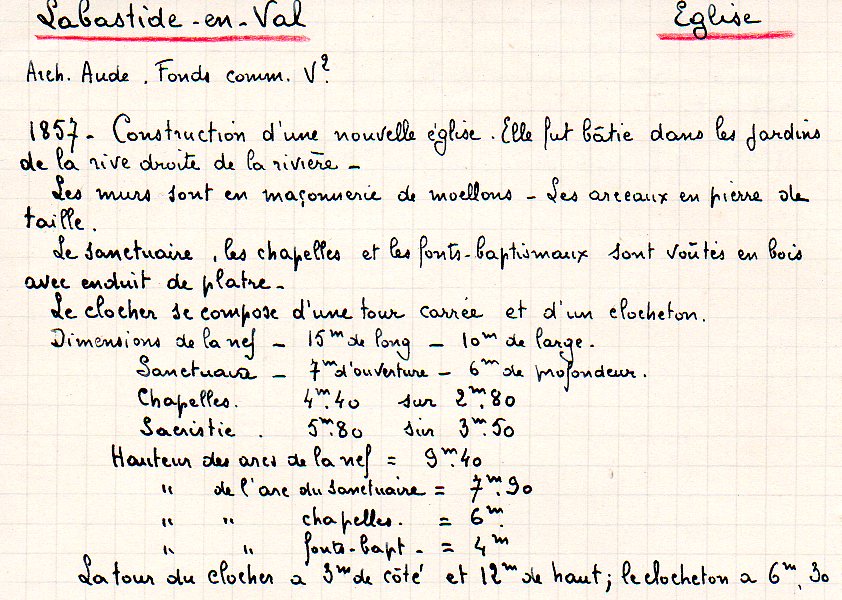 Labastide-en-Val Eglise
Arch. Aude. Fonds comm. V².
1857 - Construction d'une nouvelle église. Elle fut bâtie dans les jardins
de la rive droite de la rivière -
Les murs sont en maçonnerie de moellons - Les arceaux en pierre de
taille.
Le sanctuaire, les chapelles et les fonts-baptismaux sont voûtés en bois
avec enduit de platre -
Le clocher se compose d'une tour carrée et d'un clocheton.
Dimensions de la nef - 15ᵐ de long - 10ᵐ de large.
Sanctuaire - 7ᵐ d'ouverture - 6ᵐ de profondeur.
Chapelles. 4ᵐ.40 sur 2ᵐ.80
Sacristie. 5ᵐ.80 sur 3ᵐ.50
Hauteur des arcs de la nef = 9ᵐ.40
" de l'arc du sanctuaire = 7ᵐ.90
" " chapelles. = 6ᵐ.
" " fonts-bapt. = 4ᵐ
La tour du clocher a 3ᵐ de côté et 12ᵐ de haut; le clocheton a 6ᵐ,30